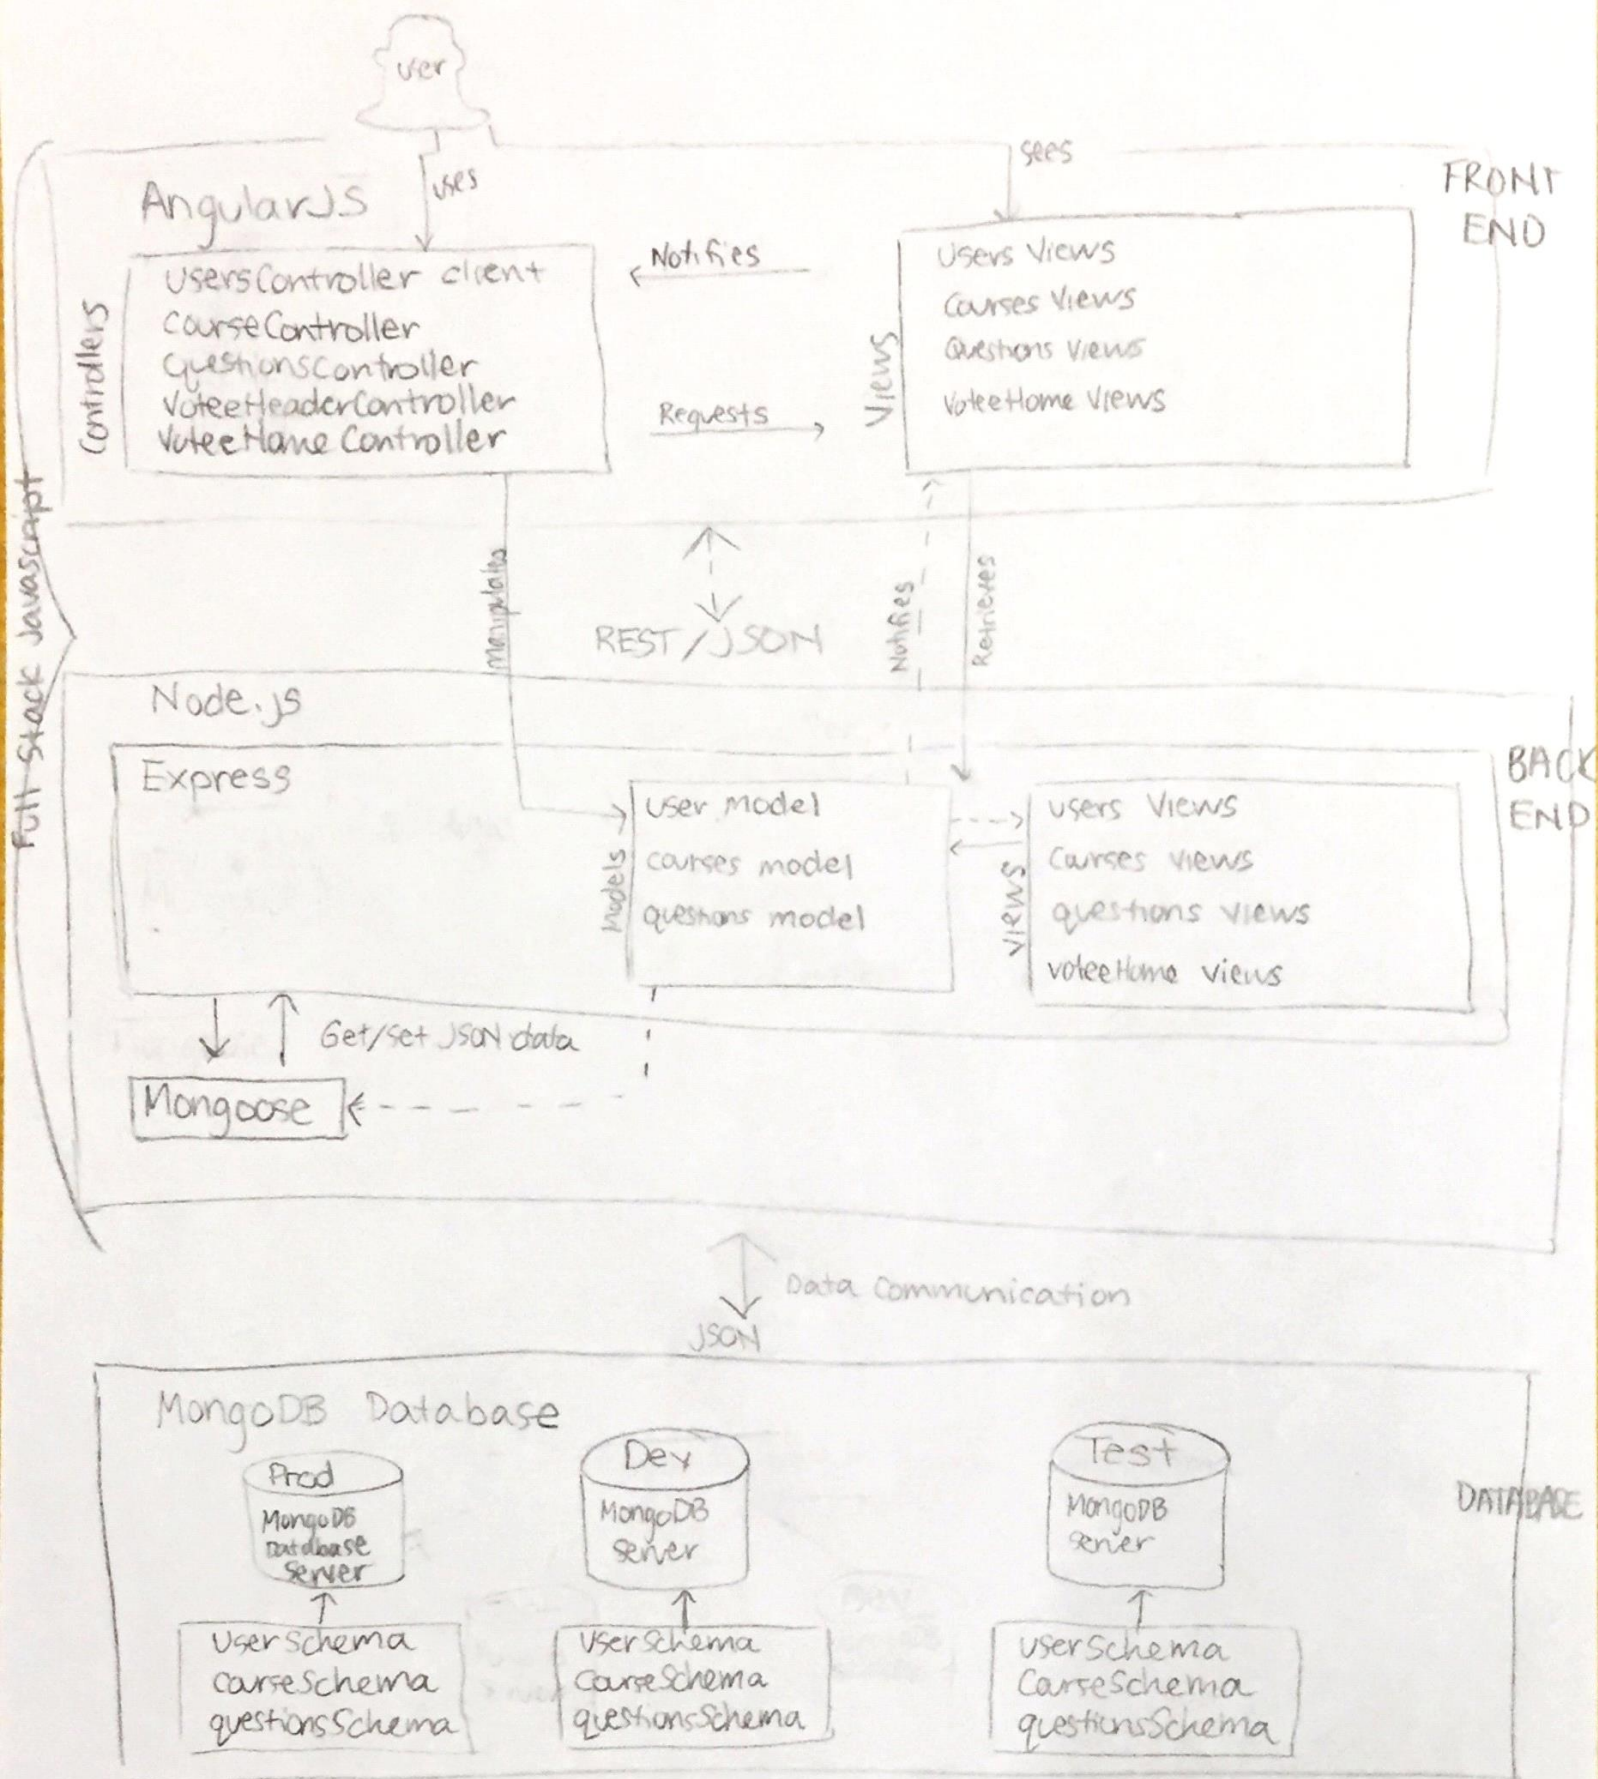 user
uses
sees
FRONT
END
AngularJS
Controllers
UsersController client
CourseController
QuestionsController
VoteeHeaderController
VoteeHome Controller
Notifies
Requests
Views
Users Views
Courses Views
Questions Views
VoteeHome Views
Full Stack Javascript
Manipulates
REST/JSON
Notifies
Retrieves
Node.js
BACK
END
Express
Models
user model
courses model
questions model
Views
users Views
Courses views
questions views
voteeHome views
Get/set JSON data
Mongoose
Data Communication
JSON
MongoDB Database
DATABASE
Prod
MongoDB
Database
Server
Dev
MongoDB
Server
Test
MongoDB
Server
UserSchema
courseSchema
questionsSchema
UserSchema
CourseSchema
questionsSchema
UserSchema
CourseSchema
questionsSchema